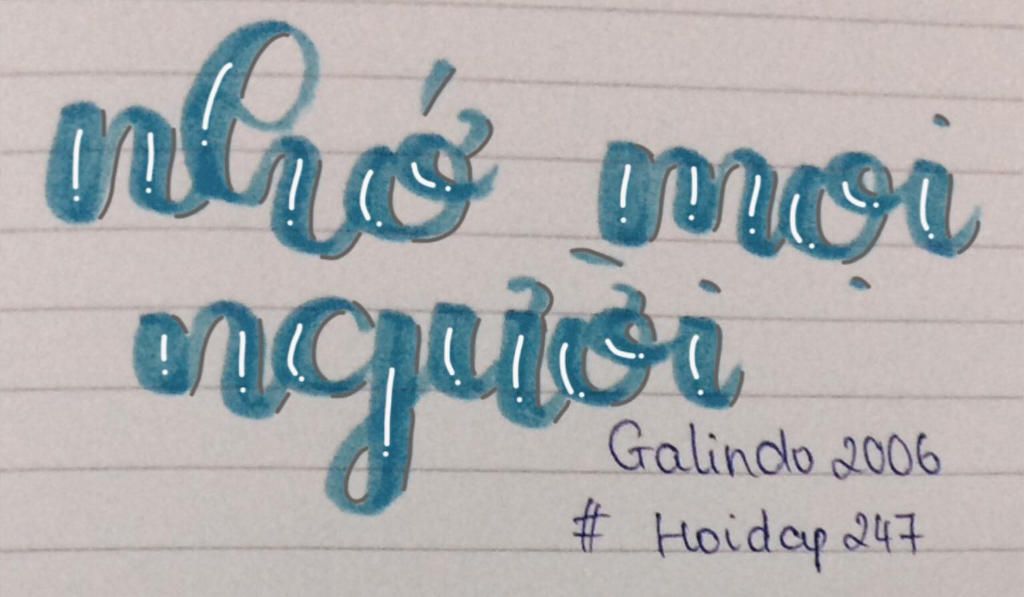 nhớ mọi
người
Galindo 2006
# Hoidap 247